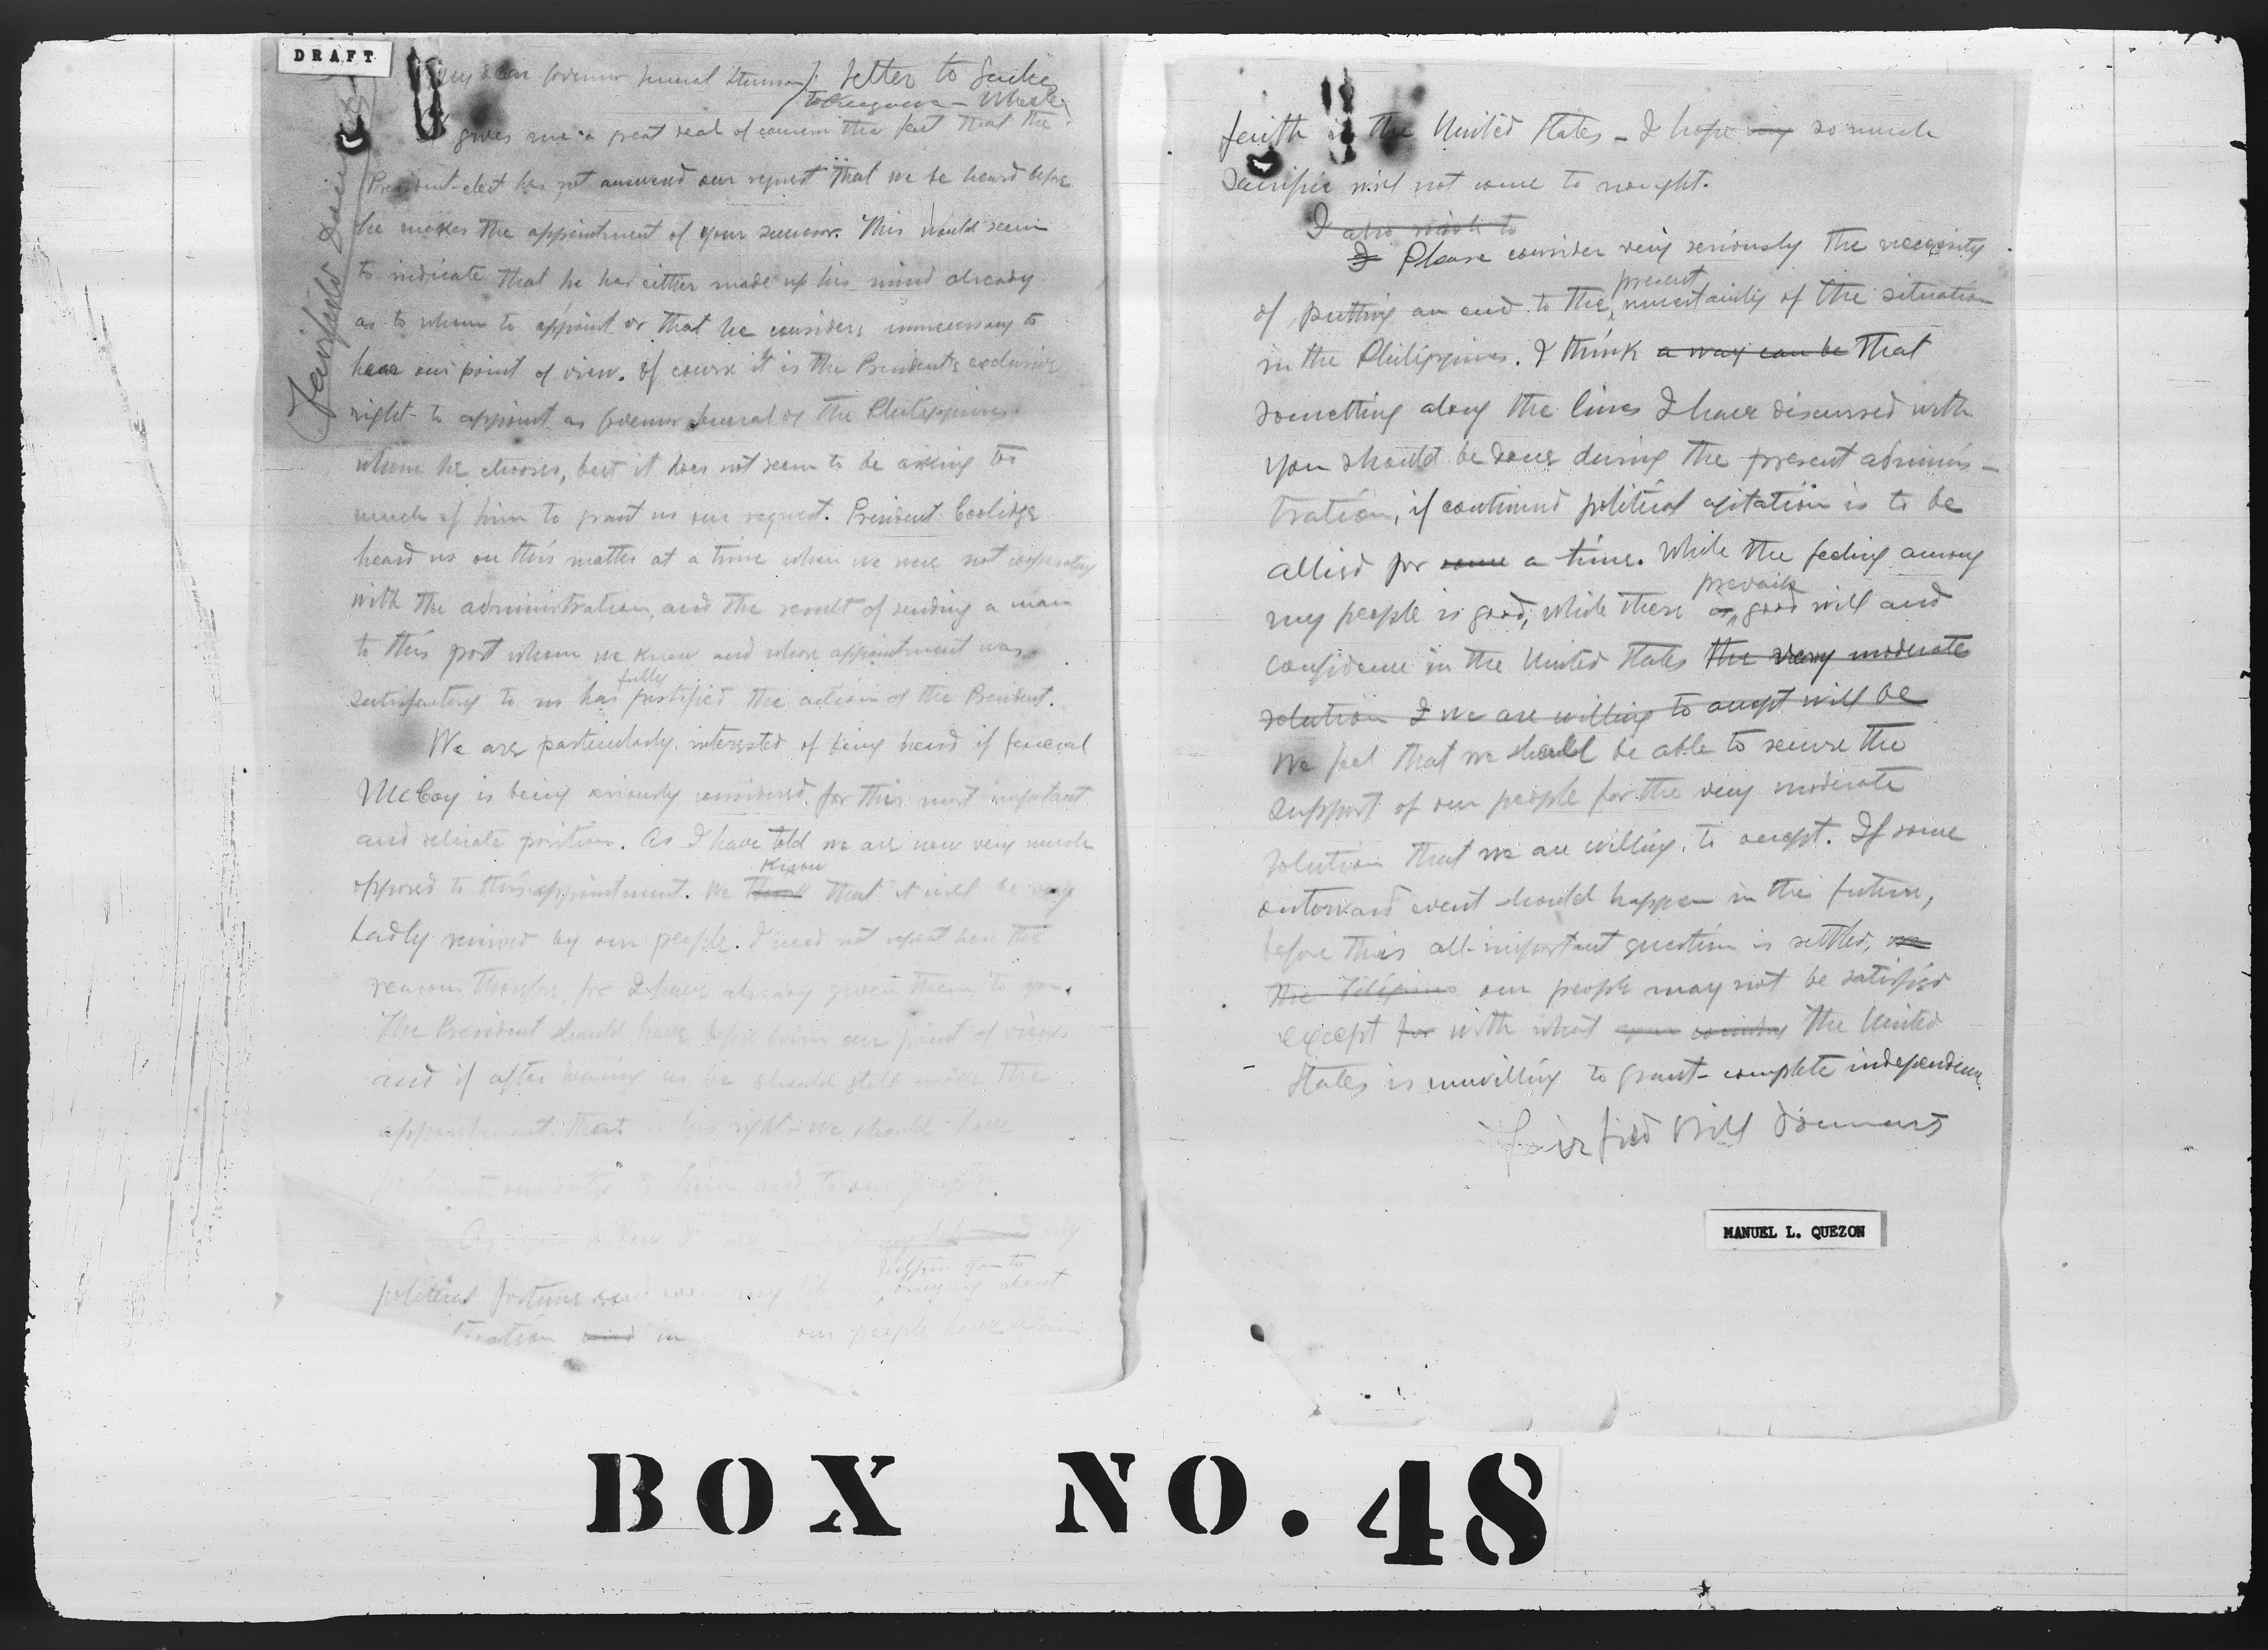 DRAFT
My dear Governor General Stimson: letter to
gives me a great deal of concern the fact that the
President-elect has not answered our request that we be heard before
he makes the appointment of your successor. This would seem
to indicate that he had either made up his mind already
as to whom to appoint or that he considers unnecessary to
hear our point of view. Of course it is the President's exclusive
right to appoint as Governor General of the Philippines
whom he chooses, but it does not seem to be asking too
much of him to grant us our request. President Coolidge
heard us on this matter at a time when we were not cooperating
with the administration, and the result of sending a man
to this post whom we knew and whose appointment was
fully
satisfactory to us has justified the action of the President.
We are particularly interested of being heard if General
McCoy is being seriously considered for this most important
and delicate position. As I have told we are now very much
know
opposed to this appointment. We think that it will be very
badly received by our people. I need not repeat here the
reasons therefor, for I have already given them to you.
The President should have before him our point of view
and if after hearing us he should still make the
appointment, that is his right - we should have
to him and to our people.
my
political fortune and even my
bringing about
in our people have
faith in the United States - I hope so much
sacrifice will not come to nought.
I also wish to
I Please consider very seriously the necessity
present
of putting an end to the uncertainty of the situation
in the Philippines. I think a way can be that
something along the lines I have discussed with
you should be done during the present adminis-
tration, if continued political agitation is to be
allied for some a time. While the feeling among
prevails
my people is good, while there good will and
confidence in the United States the very moderate
solution I we are willing to accept will be
We feel that we should be able to secure the
support of our people for the very moderate
solution that we are willing to accept. If some
outward event should happen in the future,
before this all-important question is settled,
the Filipinos our people may not be satisfied
except for with what your country the United
States is unwilling to grant - complete independence.
Fairfield Bill
MANUEL L. QUEZON
BOX NO. 48